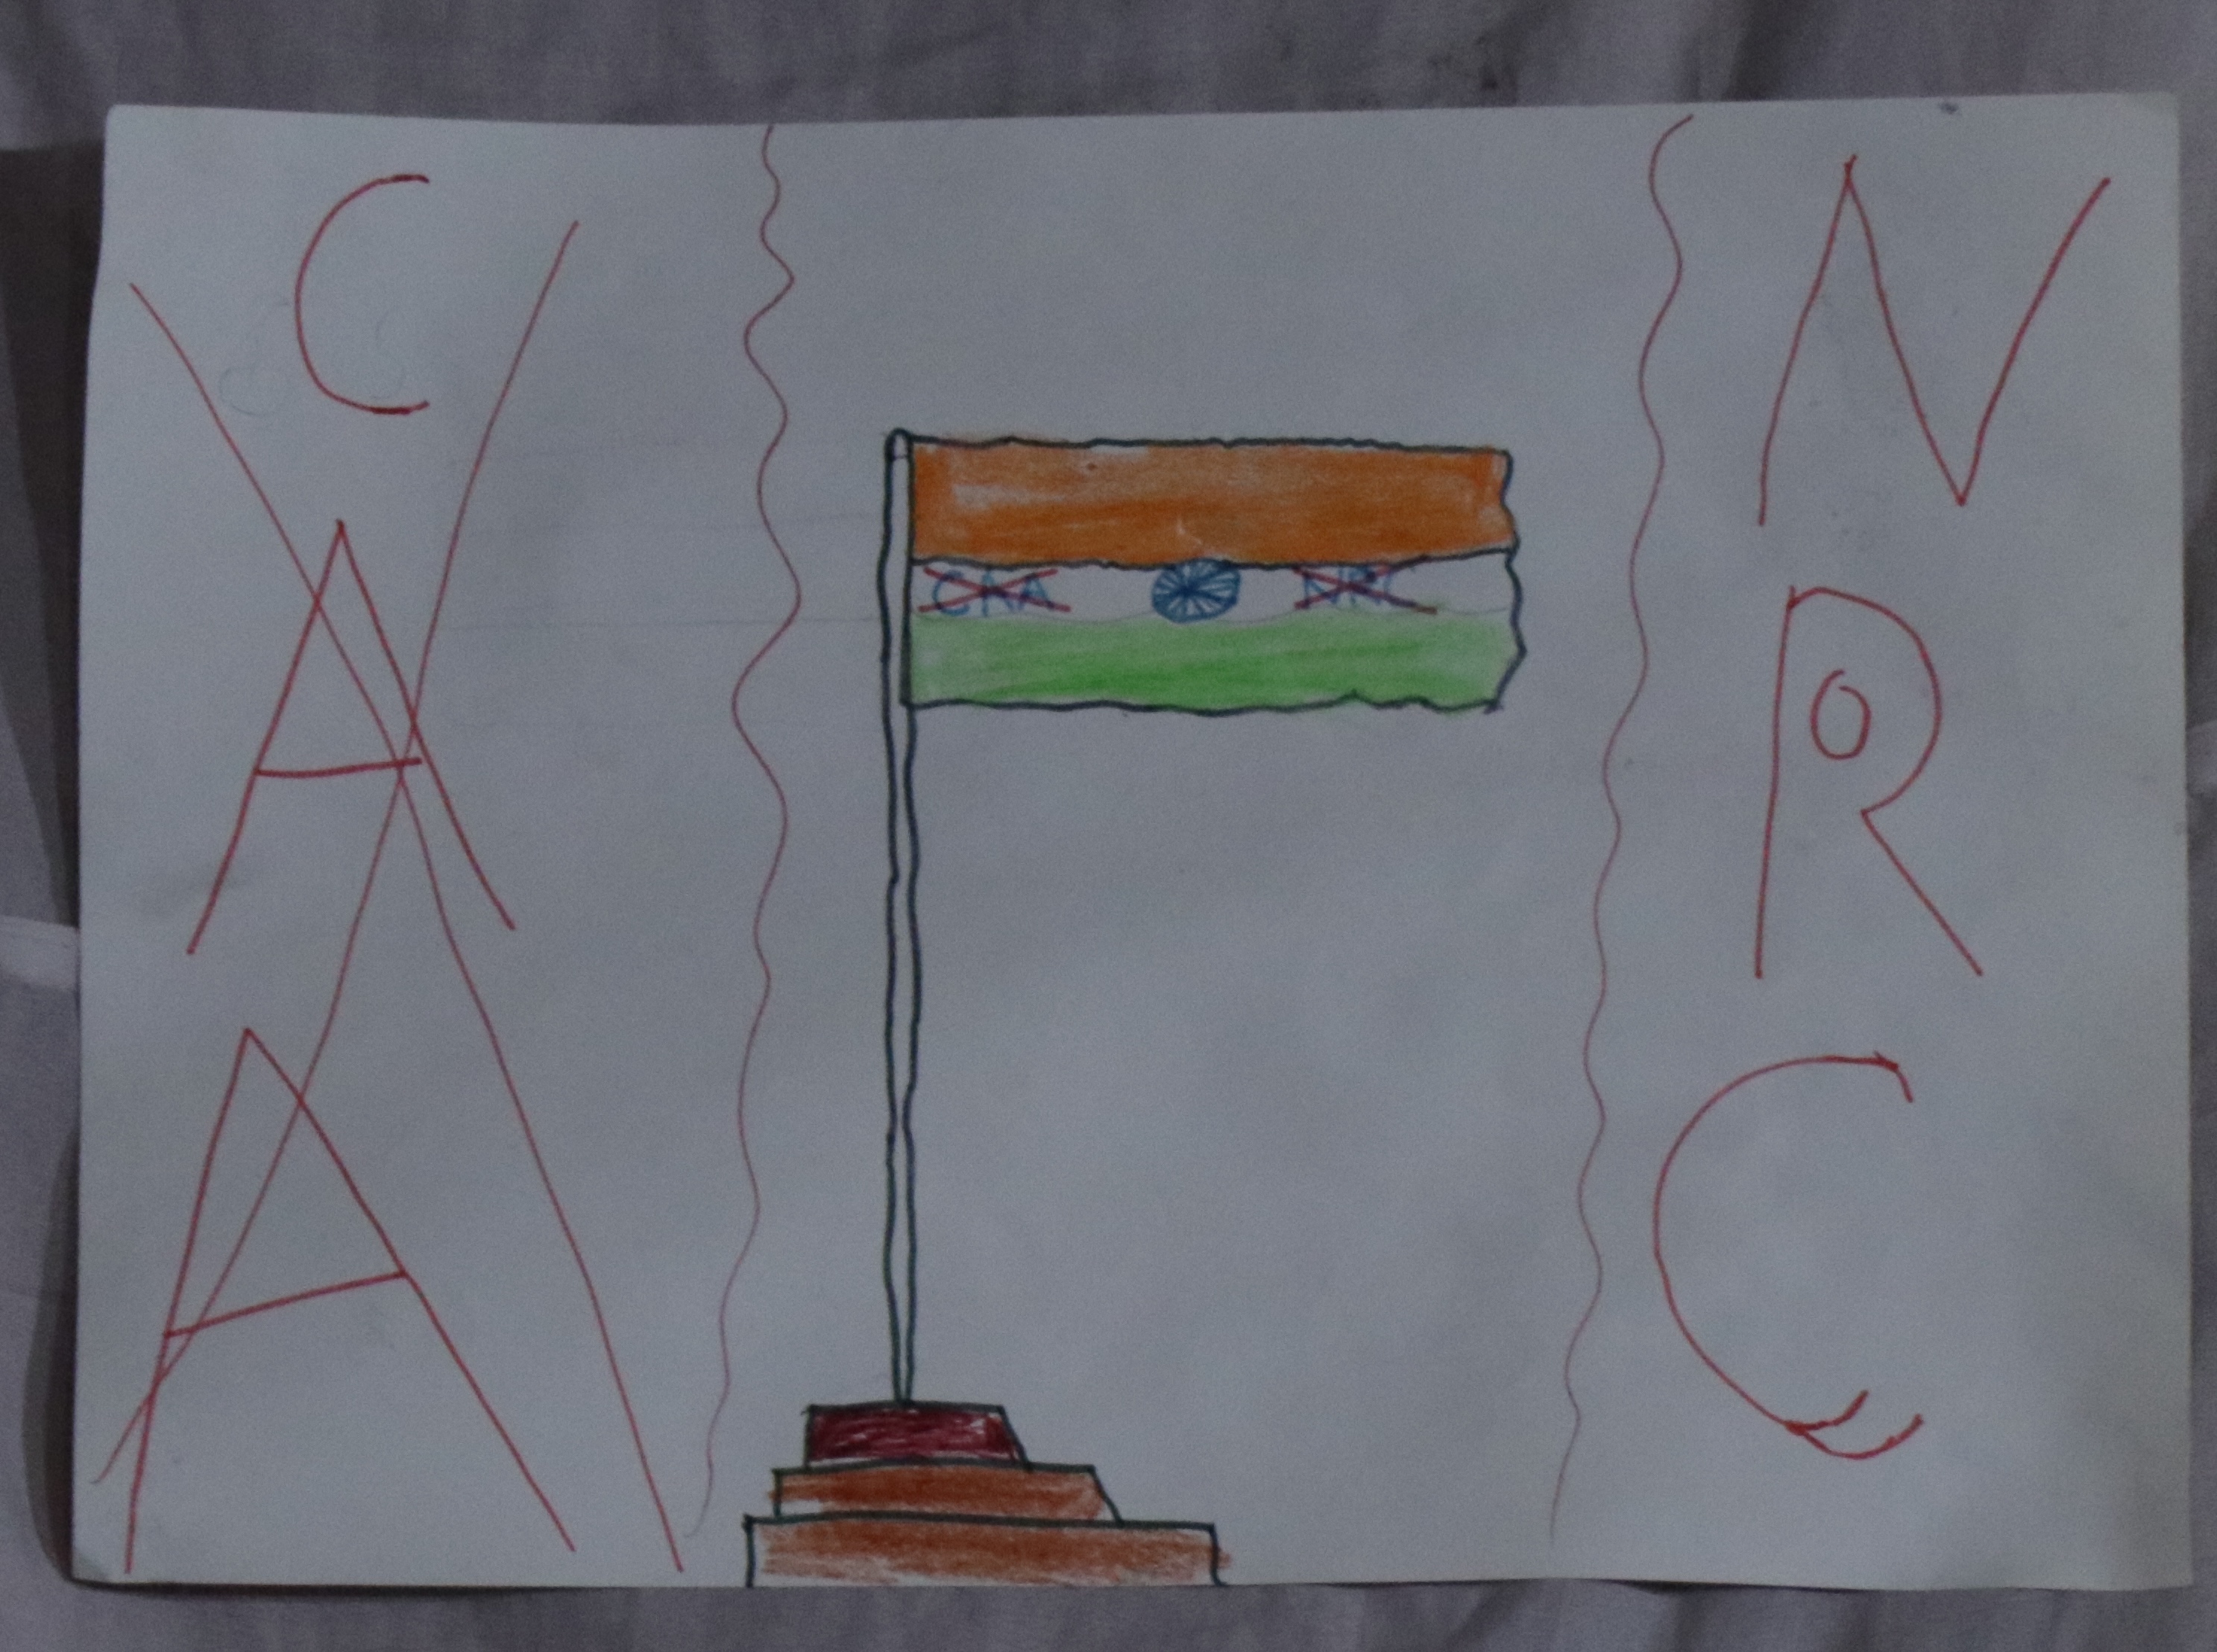 C
A
A
CAA
NRC
N
R
C